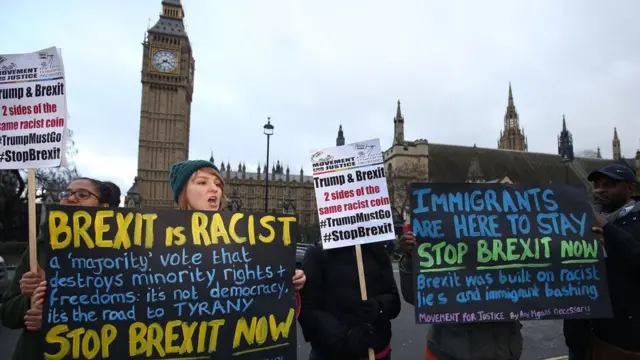 MOVEMENT
FOR JUSTICE
Trump & Brexit
2 sides of the
same racist coin
#TrumpMustGo
#StopBrexit
BREXIT is RACIST
a 'majority' vote that
destroys minority rights +
freedoms: it's not democracy,
it's the road to TYRANNY
STOP BREXIT NOW
MOVEMENT
FOR JUSTICE
Trump & Brexit
2 sides of the
same racist coin
#TrumpMustGo
#StopBrexit
IMMIGRANTS
ARE HERE TO STAY
STOP BREXIT NOW
Brexit was built on racist
lies and immigrant bashing
MOVEMENT FOR JUSTICE By Any Means Necessary!